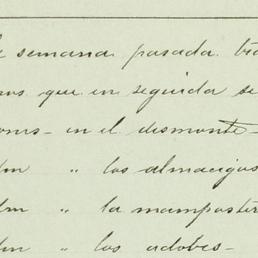 semana pasada tra
que en seguida se
en el desmonte -
" los almacigos
" la mamposter
" los adobes -